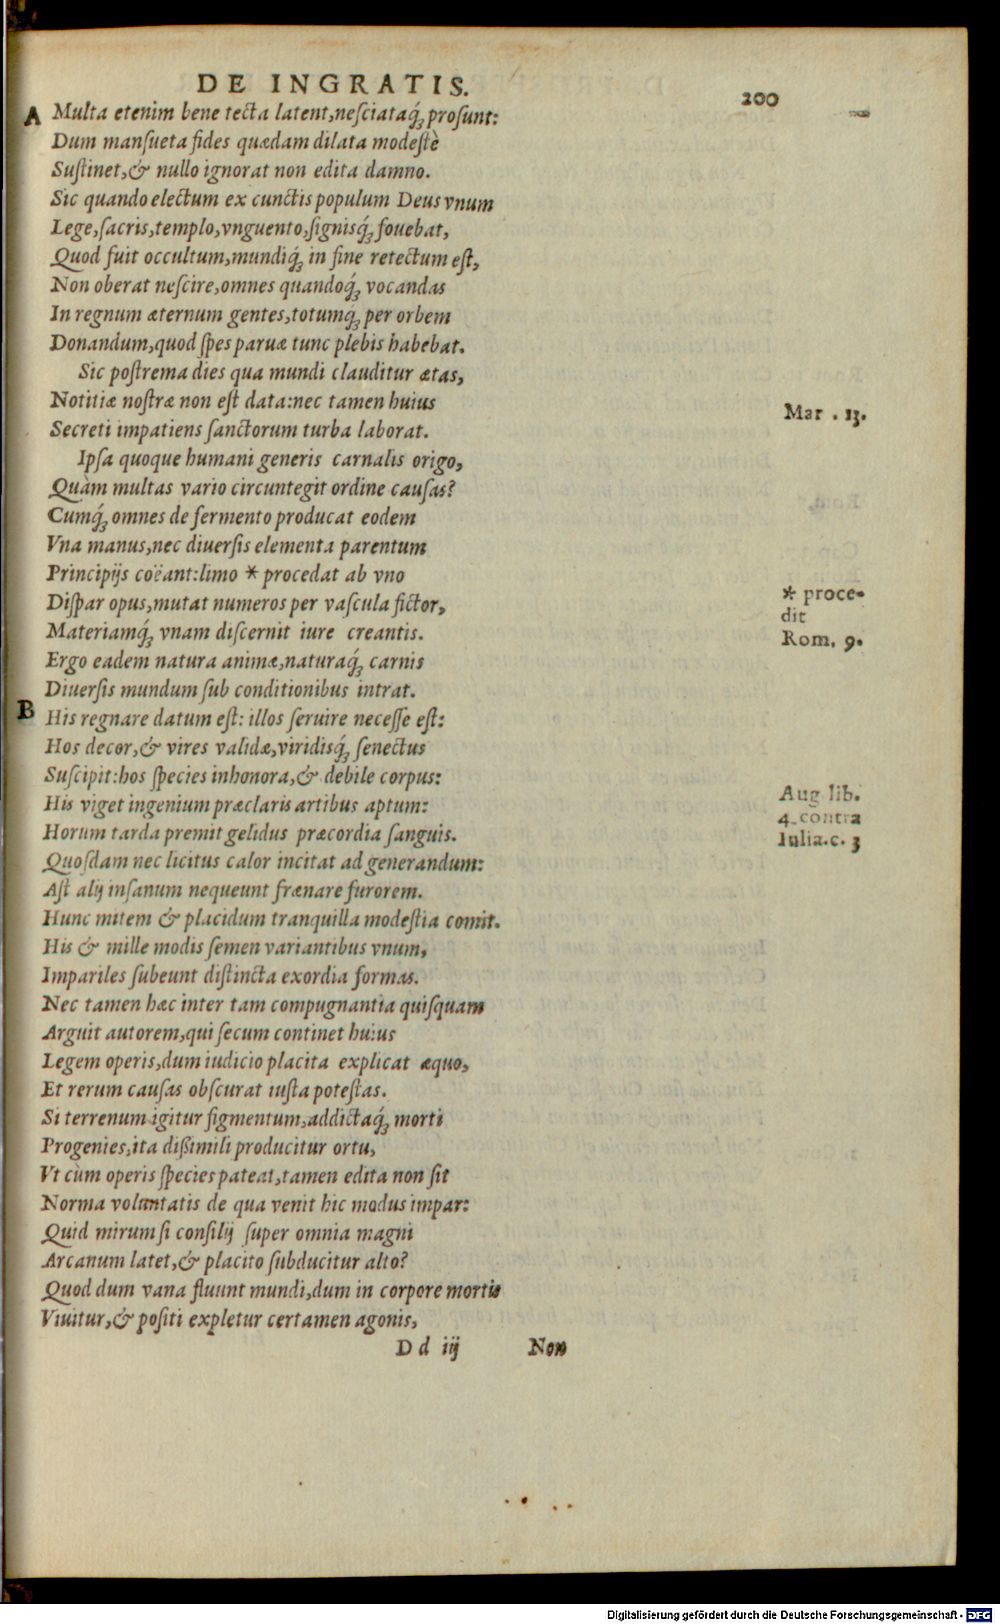 DE INGRATIS.
200
A Multa etenim bene tecta latent,neſciataq́ꝫ proſunt:
Dum manſueta fides quædam dilata modeſtè
Suſtinet,& nullo ignorat non edita damno.
Sic quando electum ex cunctis populum Deus vnum
Lege,ſacris,templo,vnguento,ſignisq́ꝫ fouebat,
Quod fuit occultum,mundiq́ꝫ in fine retectum eſt,
Non oberat neſcire,omnes quandoq́ꝫ vocandas
In regnum æternum gentes,totumq́ꝫ per orbem
Donandum,quod ſpes paruæ tunc plebis habebat.
Sic poſtrema dies qua mundi clauditur ætas,
Notitiæ noſtræ non eſt data:nec tamen huius
Mar . 13.
Secreti impatiens ſanctorum turba laborat.
Ipſa quoque humani generis carnalis origo,
Quàm multas vario circuntegit ordine cauſas?
Cumq́ꝫ omnes de fermento producat eodem
Vna manus,nec diuerſis elementa parentum
Principijs coëant:limo * procedat ab vno
* proce-
dit
Diſpar opus,mutat numeros per vaſcula fictor,
Materiamq́ꝫ vnam diſcernit iure creantis.
Rom. 9.
Ergo eadem natura animæ,naturaq́ꝫ carnis
Diuerſis mundum ſub conditionibus intrat.
B His regnare datum eſt: illos ſeruire neceſſe eſt:
Hos decor,& vires validæ,viridisq́ꝫ ſenectus
Suſcipit:hos ſpecies inhonora,& debile corpus:
His viget ingenium præclaris artibus aptum:
Aug lib.
4. contra
Iulia.c. 3
Horum tarda premit gelidus præcordia ſanguis.
Quoſdam nec licitus calor incitat ad generandum:
Aſt alij inſanum nequeunt frænare furorem.
Hunc mitem & placidum tranquilla modeſtia comit.
His & mille modis ſemen variantibus vnum,
Impariles ſubeunt diſtincta exordia formas.
Nec tamen hæc inter tam compugnantia quiſquam
Arguit autorem,qui ſecum continet huius
Legem operis,dum iudicio placita explicat æquo,
Et rerum cauſas obſcurat iuſta poteſtas.
Si terrenum igitur figmentum,addictaq́ꝫ morti
Progenies,ita diſsimili producitur ortu,
Vt cùm operis ſpecies pateat,tamen edita non ſit
Norma voluntatis de qua venit hic modus impar:
Quid mirum ſi conſilij ſuper omnia magni
Arcanum latet,& placito ſubducitur alto?
Quod dum vana fluunt mundi,dum in corpore mortis
Viuitur,& poſiti expletur certamen agonis,
D d iij
Non
Digitalisierung gefördert durch die Deutsche Forschungsgemeinschaft - DFG